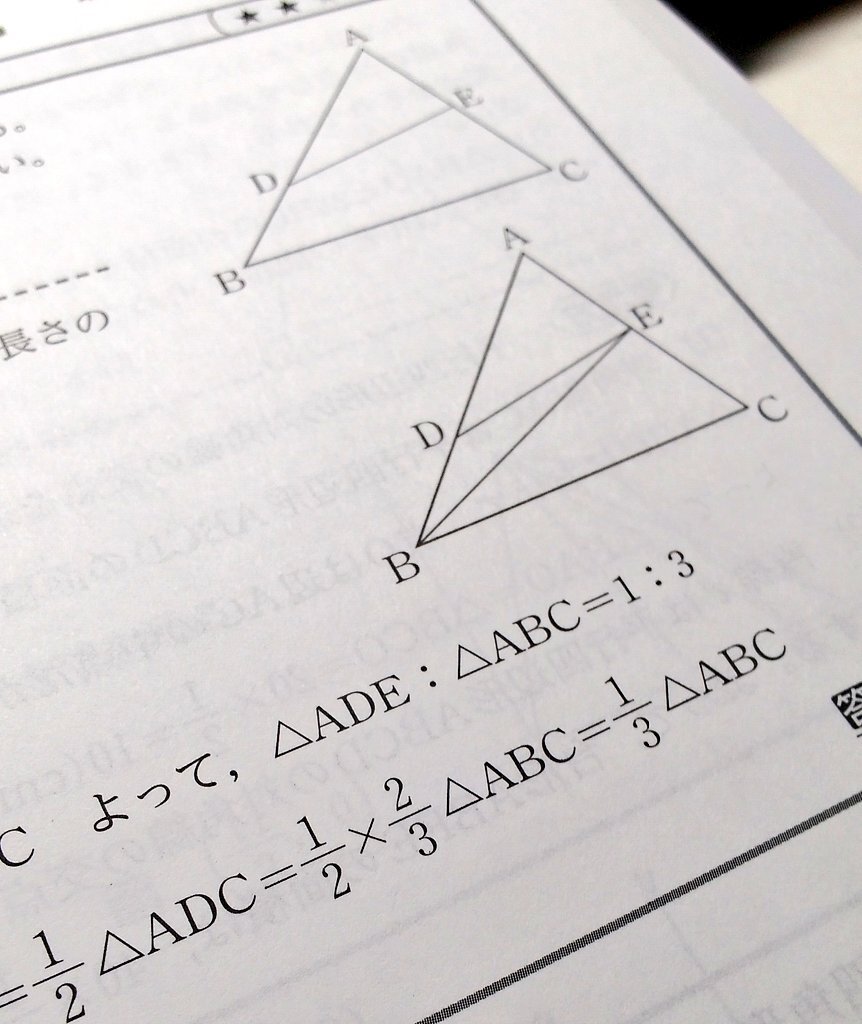 ★★
A
る。
い。
E
D
C
B
A
長さの
E
D
C
B
C よって, △ADE:△ABC=1:3
=1/2△ADC=1/2×2/3△ABC=1/3△ABC
答